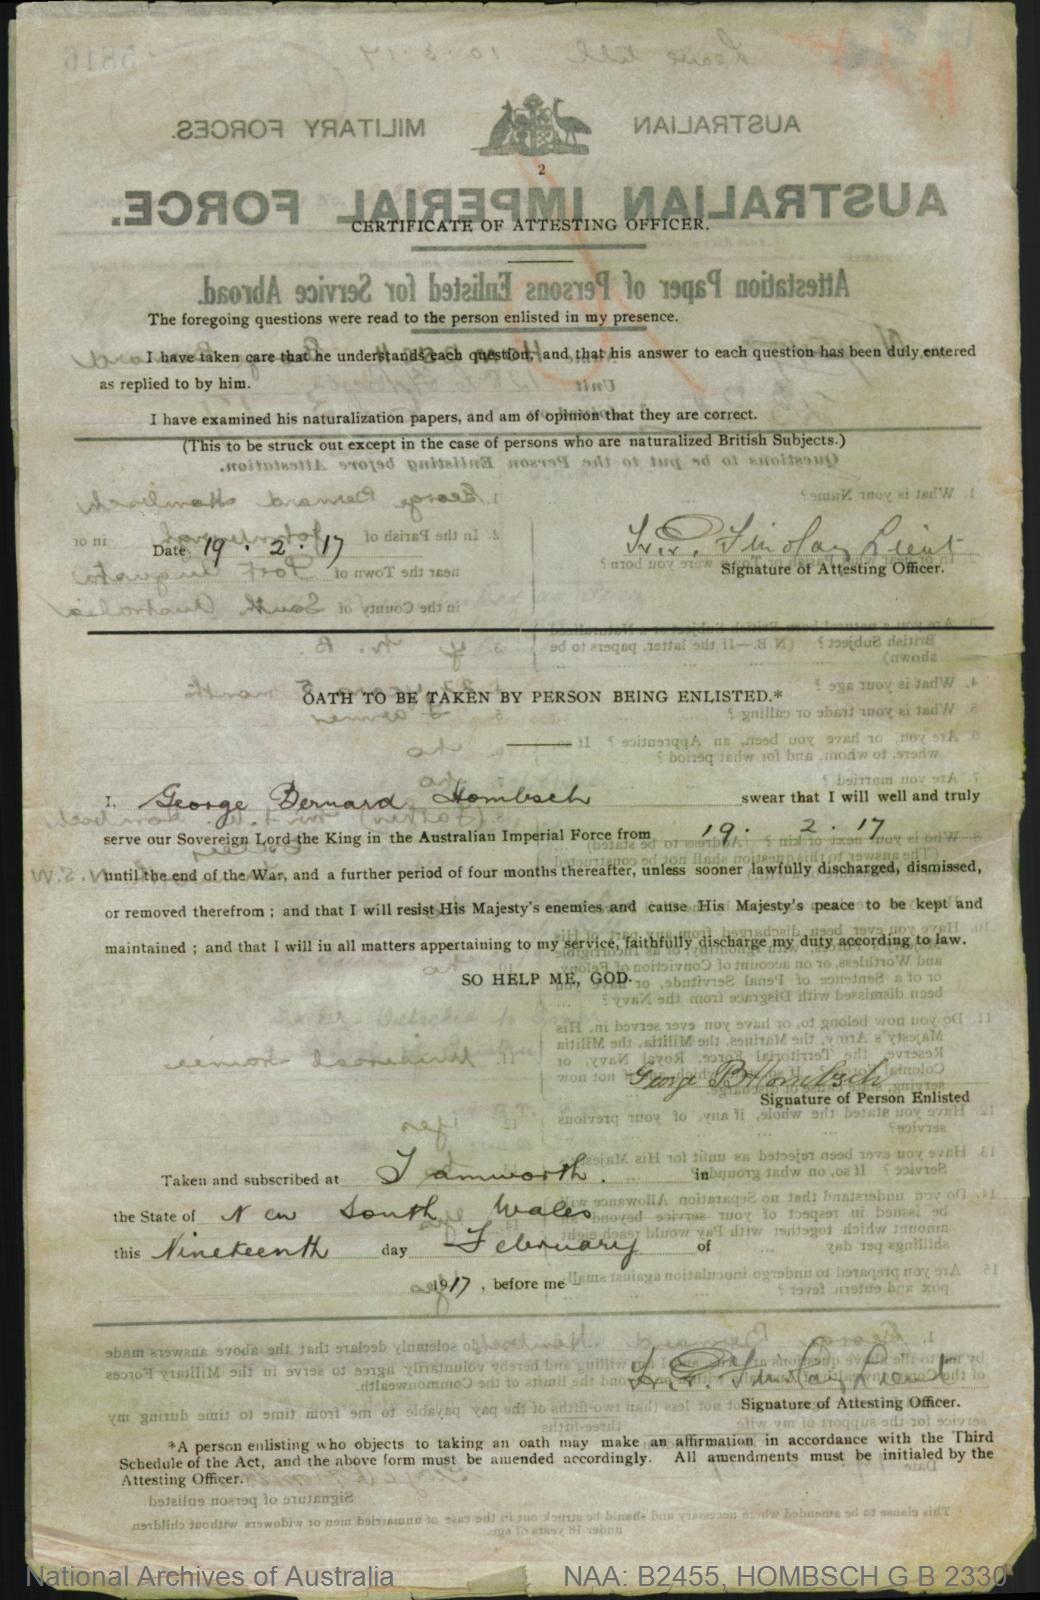 2
CERTIFICATE OF ATTESTING OFFICER.
The foregoing questions were read to the person enlisted in my presence.
I have taken care that he understands each question, and that his answer to each question has been duly entered
as replied to by him.
I have examined his naturalization papers, and am of opinion that they are correct.
(This to be struck out except in the case of persons who are naturalized British Subjects.)
Date 19 . 2 . 17
Finlay Lieut
Signature of Attesting Officer.
OATH TO BE TAKEN BY PERSON BEING ENLISTED.*
I, George Bernard Hombsch swear that I will well and truly
serve our Sovereign Lord the King in the Australian Imperial Force from 19 . 2 . 17
until the end of the War, and a further period of four months thereafter, unless sooner lawfully discharged, dismissed,
or removed therefrom ; and that I will resist His Majesty's enemies and cause His Majesty's peace to be kept and
maintained ; and that I will in all matters appertaining to my service, faithfully discharge my duty according to law.
SO HELP ME, GOD.
George B Hombsch
Signature of Person Enlisted
Taken and subscribed at Tamworth. in
the State of New South Wales
this Nineteenth day February of
1917, before me –
Finlay Lieut
Signature of Attesting Officer.
*A person enlisting who objects to taking an oath may make an affirmation in accordance with the Third
Schedule of the Act, and the above form must be amended accordingly. All amendments must be initialed by the
Attesting Officer.
National Archives of Australia NAA: B2455, HOMBSCH G B 2330